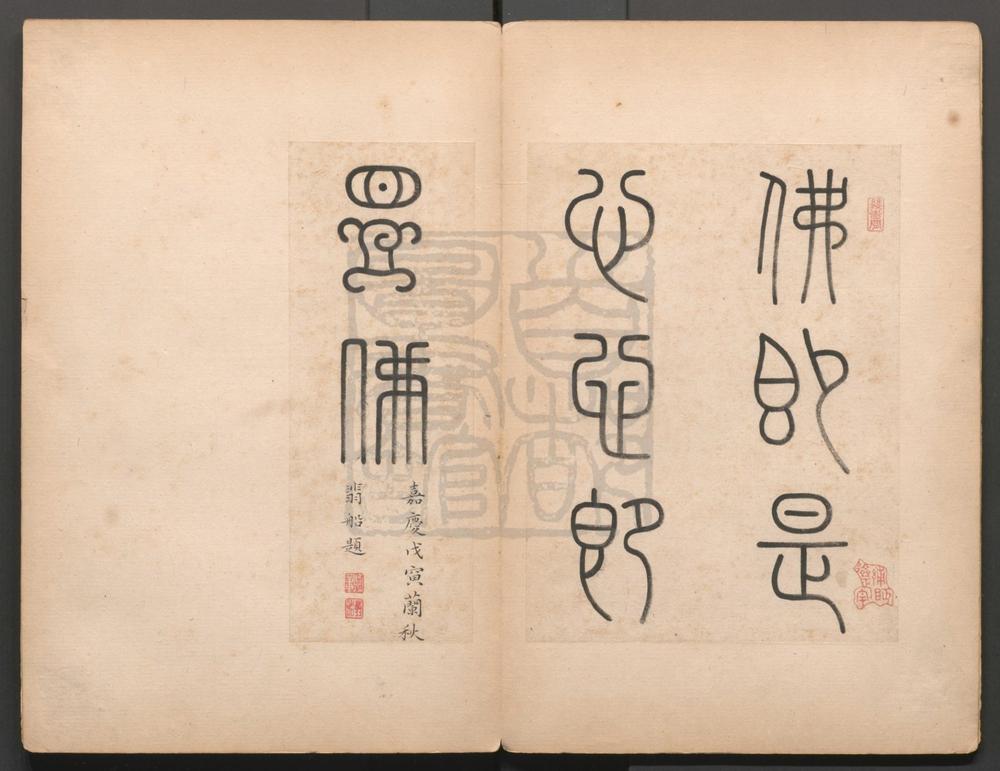 佛即是
心心即
是佛
嘉慶戊寅蘭秋
翡船題